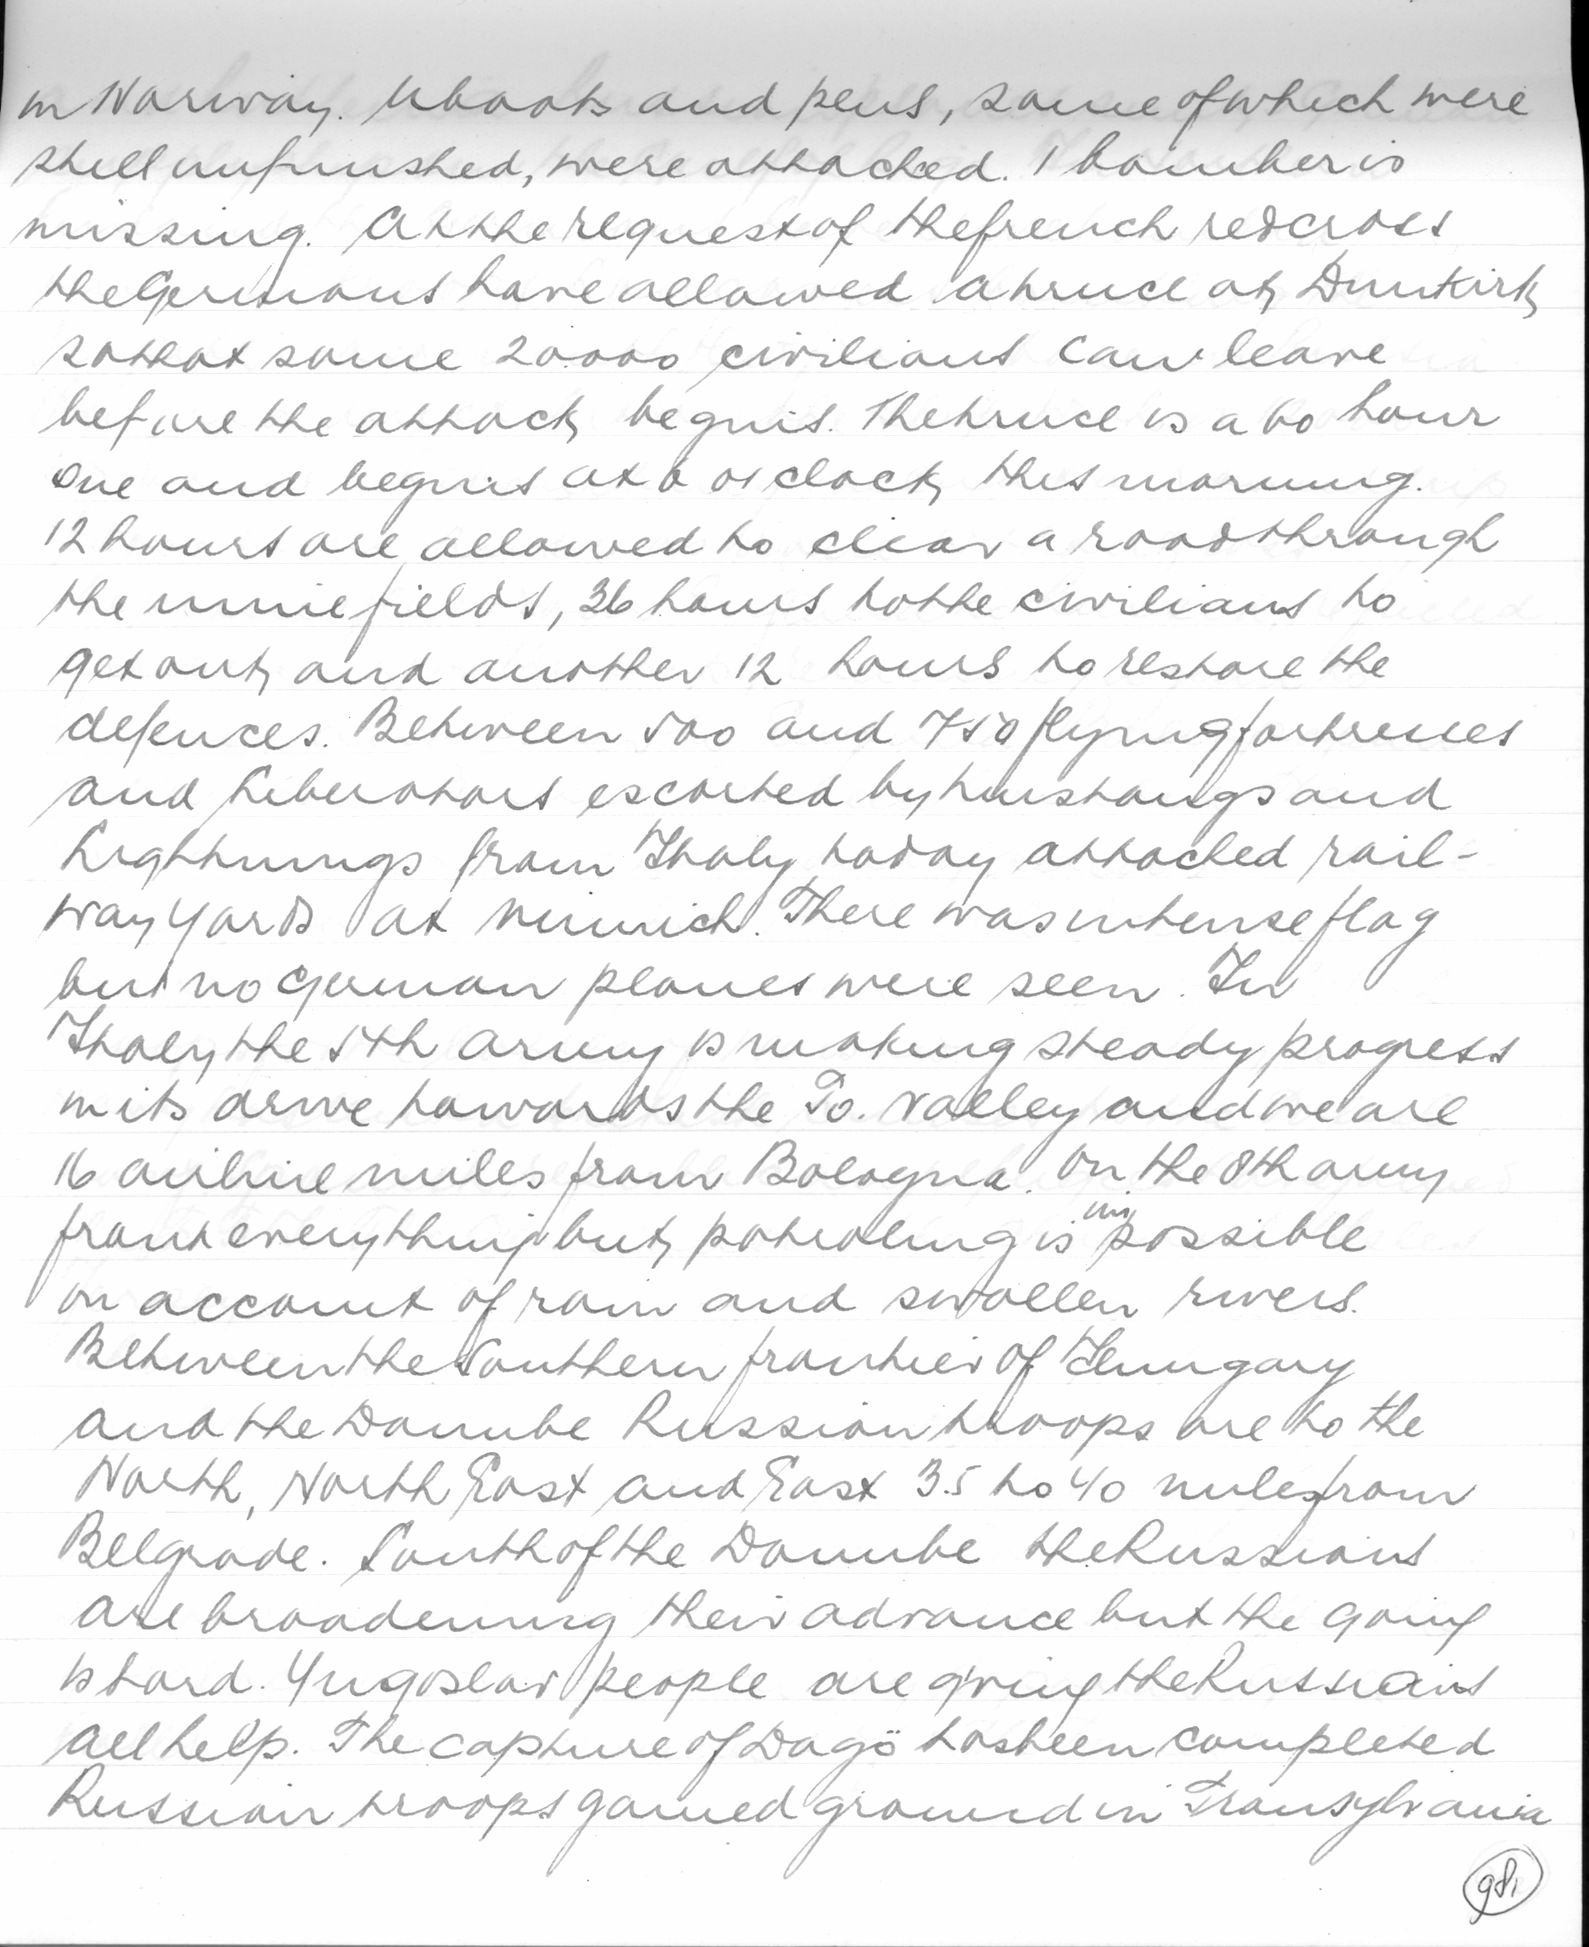 in Norway. Uboats and pens, some of which were
still unfinished, were attacked. 1 bomber is
missing. At the request of the french red cross
the Germans have allowed a truce at Dunkirk
so that some 20.000 civilians can leave
before the attack begins. The truce is a 60 hour
one and begins at 6 o'clock this morning.
12 hours are allowed to clear a road through
the minefields, 36 hours to the civilians to
get out, and another 12 hours to restore the
defences. Between 500 and 750 flying fortresses
and Liberators escorted by Mustangs and
Lightnings from Italy today attacked rail-
way yards at Munich. There was intense flag
but no German planes were seen. In
Italy the 5th army is making steady progress
in its drive towards the Po. valley and we are
16 airline miles from Bologna. On the 8th army
front everything but patroling is impossible
on account of rain and swollen rivers.
Between the Southern frontier of Hungary
and the Danube Russian troops are to the
North, North East and East 35 to 40 miles from
Belgrade. South of the Danube the Russians
are broadening their advance but the going
is hard. Yugoslav people are giving the Russians
all help. The capture of Dagö has been completed
Russian troops gained ground in Transylvania
981